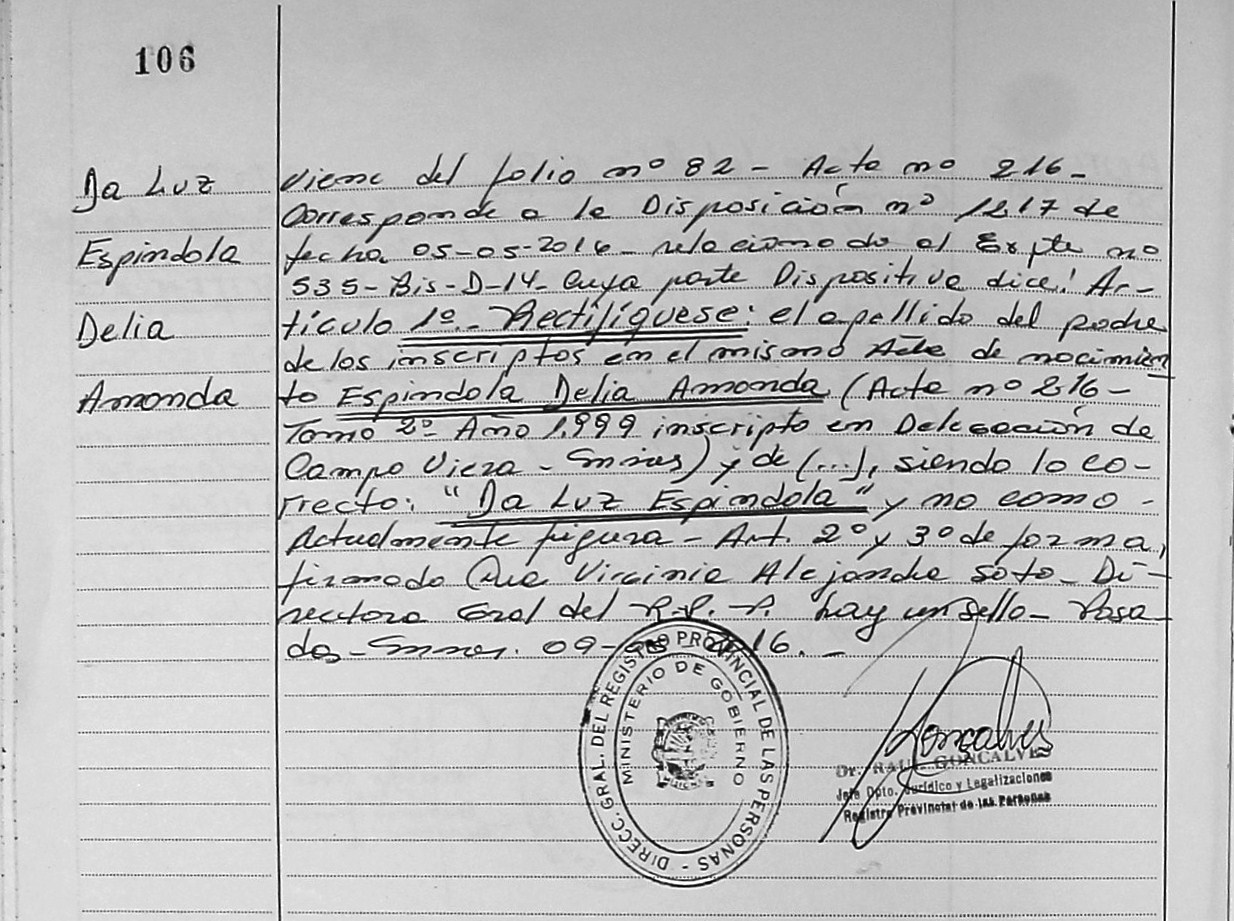 106
Da Luz
Espindola
Delia
Amanda
Viene del folio nº 82 - Acta nº 216 -
Corresponde a la Disposición nº 1217 de
fecha 05-05-2016 - relacionado al Expte nº
535-Bis-D-14- Cuya parte Dispositiva dice: Ar-
tículo 1º.- Rectifíquese: el apellido del padre
de los inscriptos en el mismo Acta de nacimien
to Espindola Delia Amanda (Acta nº 216 -
Tomo 2º Año 1.999 inscripto en Delegación de
Campo Viera - Mnes) y de (...), siendo lo co-
rrecto: "Da Luz Espindola" y no como -
Actualmente figura - Art. 2º y 3º de forma,
firmado Virginia Alejandra Soto - Di-
rectora Gral del R.P.P. hay un sello - Posa-
das - Mnes. 09- 16. -
DIRECC. GRAL. DEL REGISTRO PROVINCIAL DE LAS PERSONAS -
MINISTERIO DE GOBIERNO
Goncalves
Dr. RAUL GONCALVES
Jefe Dpto. Jurídico y Legalizaciones
Registro Provincial de las Personas